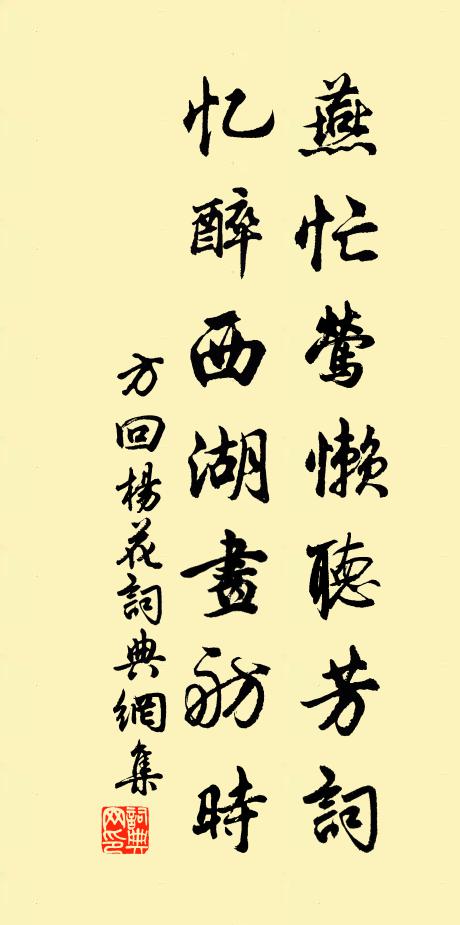 燕忙莺懒聴芳詞
忆醉西湖畫舫時
方回楊花詞典網集
詞典网印